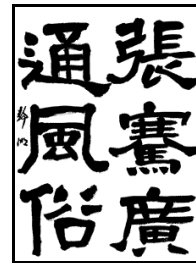 張騫廣
通風俗